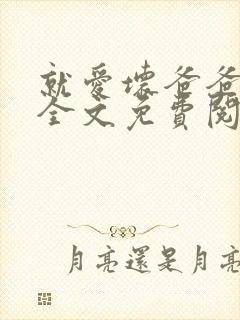 就愛壞爸爸
全文免費閱
月亮還是月亮